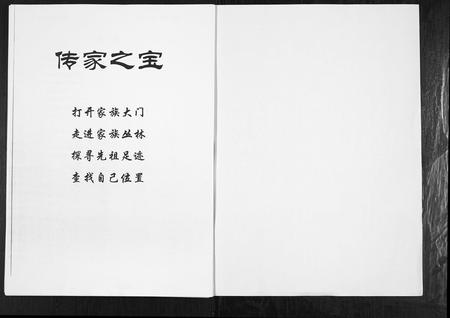 传家之宝
打开家族大门
走进家族丛林
探寻先祖足迹
查找自己位置